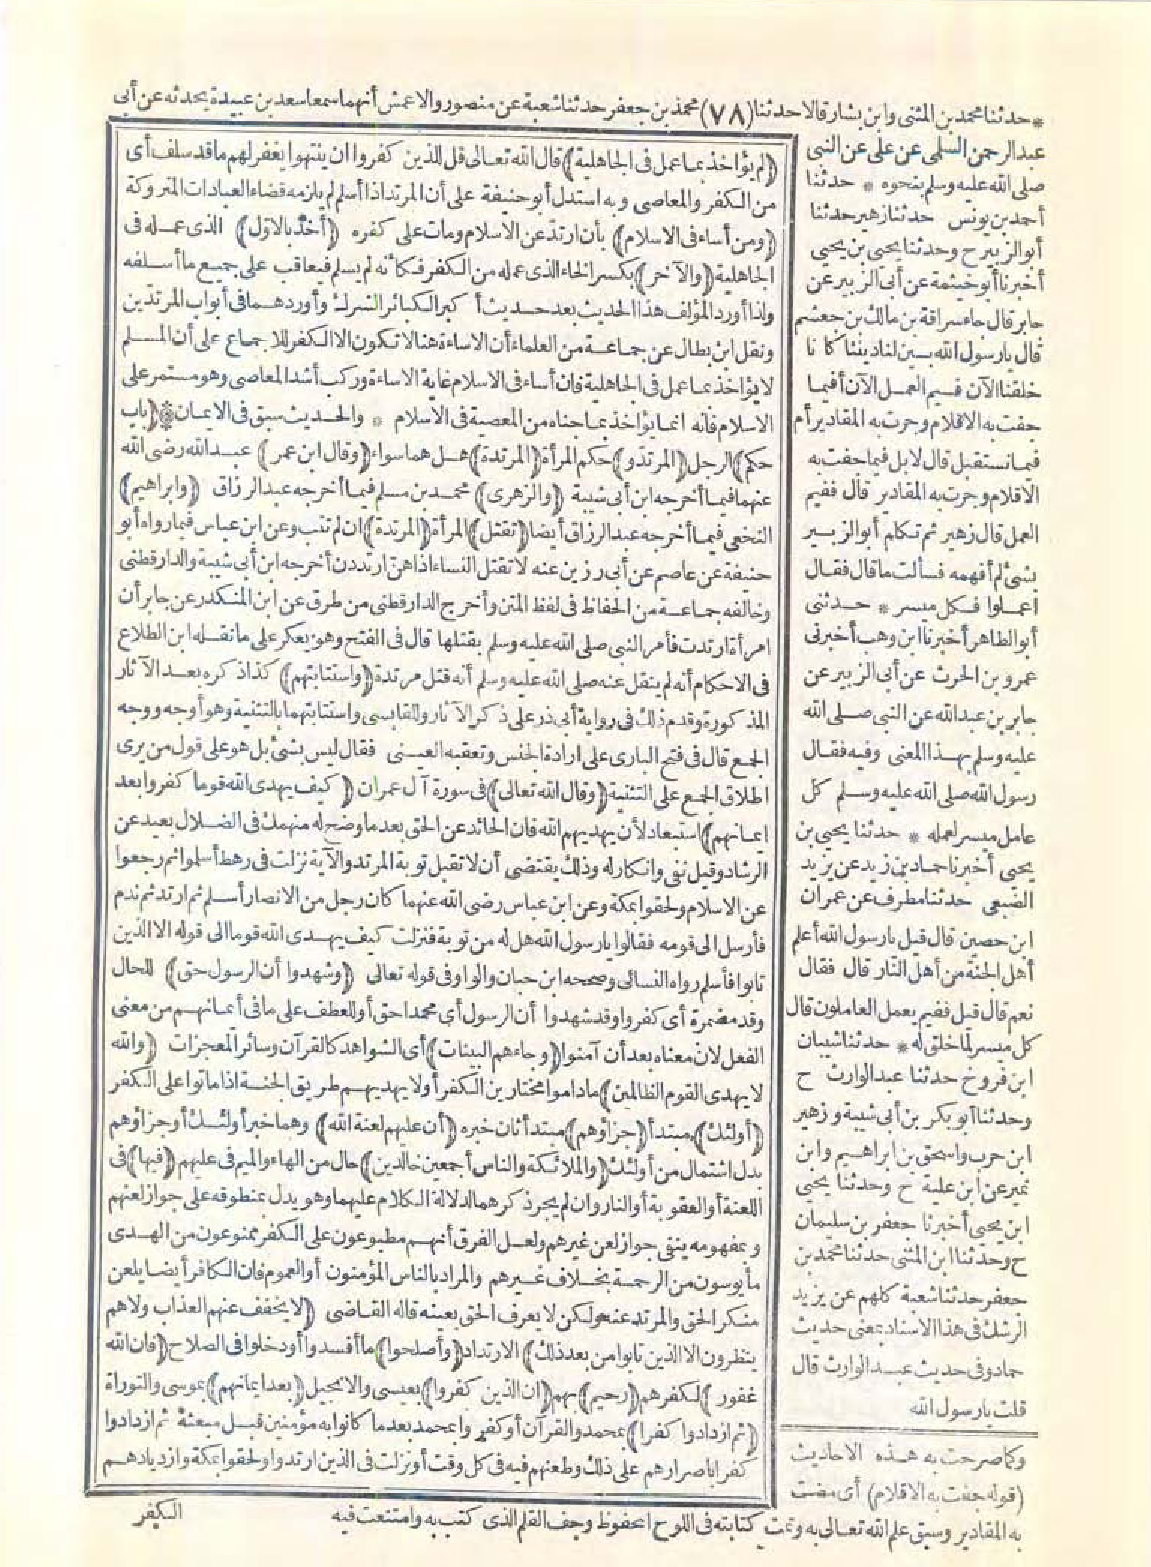 * حدثنا محمد بن المثنى وابن بشار قالا حدثنا (٧٨) محمد بن جعفر حدثنا شعبة عن منصور والاعمش أنهما سمعا سعد بن عبيدة يحدثه عن أبى
عبد الرحمن السلمى عن على عن النبى
صلى الله عليه وسلم بنحوه * حدثنا
أحمد بن يونس حدثنا زهير حدثنا
أبو الزبير ح وحدثنا يحيى بن يحيى
أخبرنا أبو خيثمة عن أبى الزبير عن
جابر قال جاء سراقة بن مالك بن جعشم
قال يا رسول الله بين لنا ديننا كأنا
خلقنا الآن فيم العمل الآن أفيما
جفت به الاقلام وجرت به المقادير أم
فيما نستقبل قال لا بل فيما جفت به
الاقلام وجرت به المقادير قال ففيم
العمل قال زهير ثم تكلم أبو الزبير
بشئ لم أفهمه فسألت ما قال فقال
اعملوا فكل ميسر * حدثنى
أبو الطاهر أخبرنا ابن وهب أخبرنى
عمرو بن الحرث عن أبى الزبير عن
جابر بن عبد الله عن النبى صلى الله
عليه وسلم بهذا المعنى وفيه فقال
رسول الله صلى الله عليه وسلم كل
عامل ميسر لعمله * حدثنا يحيى بن
يحيى أخبرنا حماد بن زيد عن يزيد
الضبعى حدثنا مطرف عن عمران
ابن حصين قال قيل يا رسول الله أعلم
أهل الجنة من أهل النار قال فقال
نعم قال قيل ففيم يعمل العاملون قال
كل ميسر لما خلق له * حدثنا شيبان
ابن فروخ حدثنا عبد الوارث ح
وحدثنا أبو بكر بن أبى شيبة وزهير
ابن حرب واسحق بن ابراهيم وابن
نمير عن ابن علية ح وحدثنا يحيى
ابن يحيى أخبرنا جعفر بن سليمان
ح وحدثنا ابن المثنى حدثنا محمد بن
جعفر حدثنا شعبة كلهم عن يزيد
الرشك فى هذا الاسناد بمعنى حديث
حماد وفى حديث عبد الوارث قال
قلت يا رسول الله
وكما صرحت به هذه الاحاديث
(قوله جفت به الاقلام) أى مضت
به المقادير وسبق علم الله تعالى به وتمت كتابته فى اللوح المحفوظ وجف القلم الذى كتب به وامتنعت فيه
(لم يؤاخذ بما عمل فى الجاهلية) قال الله تعالى قل الذين كفروا ان ينتهوا يغفر لهم ما قد سلف أى
من الكفر والمعاصى وبه استدل أبو حنيفة على أن المرتد اذا أسلم لم يلزمه قضاء العبادات المتروكة
(ومن أساء فى الاسلام) بأن ارتد عن الاسلام ومات على كفره (أخذ بالاول) الذى عمله فى
الجاهلية (والآخر) بكسر الخاء الذى عمله من الكفر فكأنه لم يسلم فيعاقب على جميع ما أسلفه
ولذا أورد المؤلف هذا الحديث بعد حديث أكبر الكبائر الشرك وأوردهما فى أبواب المرتدين
ونقل ابن بطال عن جماعة من العلماء أن الاساءة هنا لا تكون الا الكفر للاجماع على أن المسلم
لا يؤاخذ بما عمل فى الجاهلية فان أساء فى الاسلام غاية الاساءة وركب أشد المعاصى وهو مستمر على
الاسلام فانه انما يؤاخذ بما جناه من المعصية فى الاسلام * والحديث سبق فى الايمان * (باب
حكم) الرجل (المرتد و) حكم المرأة (المرتدة) هل هما سواء (وقال ابن عمر) عبد الله رضى الله
عنهما فيما أخرجه ابن أبى شيبة (والزهرى) محمد بن مسلم فيما أخرجه عبد الرزاق (وابراهيم)
النخعى فيما أخرجه عبد الرزاق أيضا (تقتل) المرأة (المرتدة) ان لم تتب وعن ابن عباس فيما رواه أبو
حنيفة عن عاصم عن أبى رزين عنه لا تقتل النساء اذا هن ارتددن أخرجه ابن أبى شيبة والدارقطنى
وخالفه جماعة من الحفاظ فى لفظ المتن وأخرج الدارقطنى من طرق عن ابن المنكدر عن جابر أن
امرأة ارتدت فأمر النبى صلى الله عليه وسلم بقتلها قال فى الفتح وهو يعكر على ما نقله ابن الطلاع
فى الاحكام أنه لم ينقل عنه صلى الله عليه وسلم أنه قتل مرتدة (واستتابتهم) كذا ذكره بعد الآثار
المذكورة وقدم ذلك فى رواية أبى ذر على ذكر الآثار وللقابسى واستتابتهما بالتثنية وهو أوجه ووجه
الجمع قال فى فتح البارى على ارادة الجنس وتعقبه العينى فقال ليس بشئ بل هو على قول من يرى
اطلاق الجمع على التثنية (وقال الله تعالى) فى سورة آل عمران (كيف يهدى الله قوما كفروا بعد
ايمانهم) استبعاد لأن يهديهم الله فان الحائد عن الحق بعد ما وضح له منهمك فى الضلال بعيد عن
الرشاد وقيل نفى وانكار له وذلك يقتضى أن لا تقبل توبة المرتد والآية نزلت فى رهط أسلموا ثم رجعوا
عن الاسلام ولحقوا بمكة وعن ابن عباس رضى الله عنهما كان رجل من الانصار أسلم ثم ارتد ثم ندم
فأرسل الى قومه فقالوا يا رسول الله هل له من توبة فنزلت كيف يهدى الله قوما الى قوله الا الذين
تابوا فأسلم رواه النسائى وصححه ابن حبان والواو فى قوله تعالى (وشهدوا أن الرسول حق) للحال
وقد مضمرة أى كفروا وقد شهدوا أن الرسول أى محمدا حق أو للعطف على ما فى ايمانهم من معنى
الفعل لان معناه بعد أن آمنوا (وجاءهم البينات) أى الشواهد كالقرآن وسائر المعجزات (والله
لا يهدى القوم الظالمين) ما داموا مختارين الكفر أو لا يهديهم طريق الجنة اذا ماتوا على الكفر
(أولئك) مبتدأ (جزاؤهم) مبتدأ ثان خبره (أن عليهم لعنة الله) وهما خبر أولئك أو جزاؤهم
بدل اشتمال من أولئك (والملائكة والناس أجمعين خالدين) حال من الهاء والميم فى عليهم (فيها) فى
اللعنة أو العقوبة أو النار وان لم يجر ذكرهما لدلالة الكلام عليهما وهو يدل بمنطوقه على جواز لعنهم
وبمفهومه ينفى جواز لعن غيرهم ولعل الفرق أنهم مطبوعون على الكفر ممنوعون من الهدى
مأيوسون من الرحمة بخلاف غيرهم والمراد بالناس المؤمنون أو العموم فان الكافر أيضا يلعن
منكر الحق والمرتد عنه ولكن لا يعرف الحق بعينه قاله القاضى (لا يخفف عنهم العذاب ولا هم
ينظرون الا الذين تابوا من بعد ذلك) الارتداد (وأصلحوا) ما أفسدوا أو دخلوا فى الصلاح (فان الله
غفور) لكفرهم (رحيم) بهم (ان الذين كفروا) بعيسى والانجيل (بعد ايمانهم) بموسى والتوراة
(ثم ازدادوا كفرا) بمحمد والقرآن أو كفروا بمحمد بعد ما كانوا به مؤمنين قبل مبعثه ثم ازدادوا
كفرا باصرارهم على ذلك وطعنهم فيه فى كل وقت أو نزلت فى الذين ارتدوا ولحقوا بمكة وازديادهم
الكفر